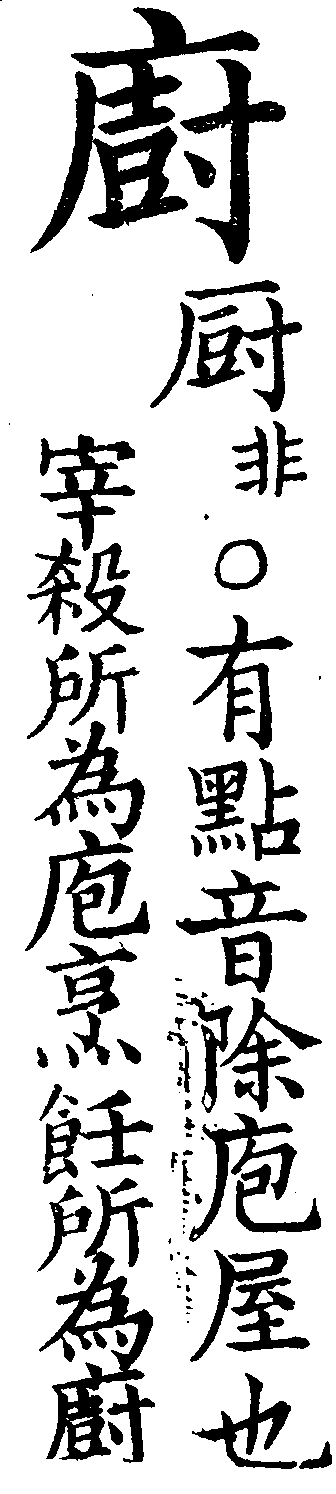 廚
厨非○有點音除庖屋也
宰殺所為庖烹飪所為廚